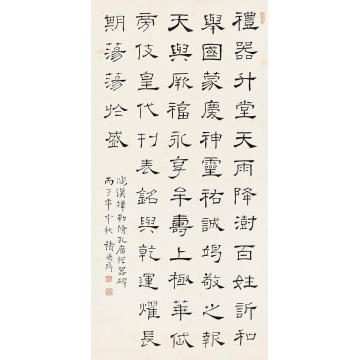 禮器升堂天雨降澍百姓訢和
舉國蒙慶神靈祐誠竭敬之報
天與厥福永享牟壽上極華
旁伎皇代刊表銘與乾運燿長
期蕩蕩於盛
漢韓勑脩孔廟禮器碑
丙子年中秋